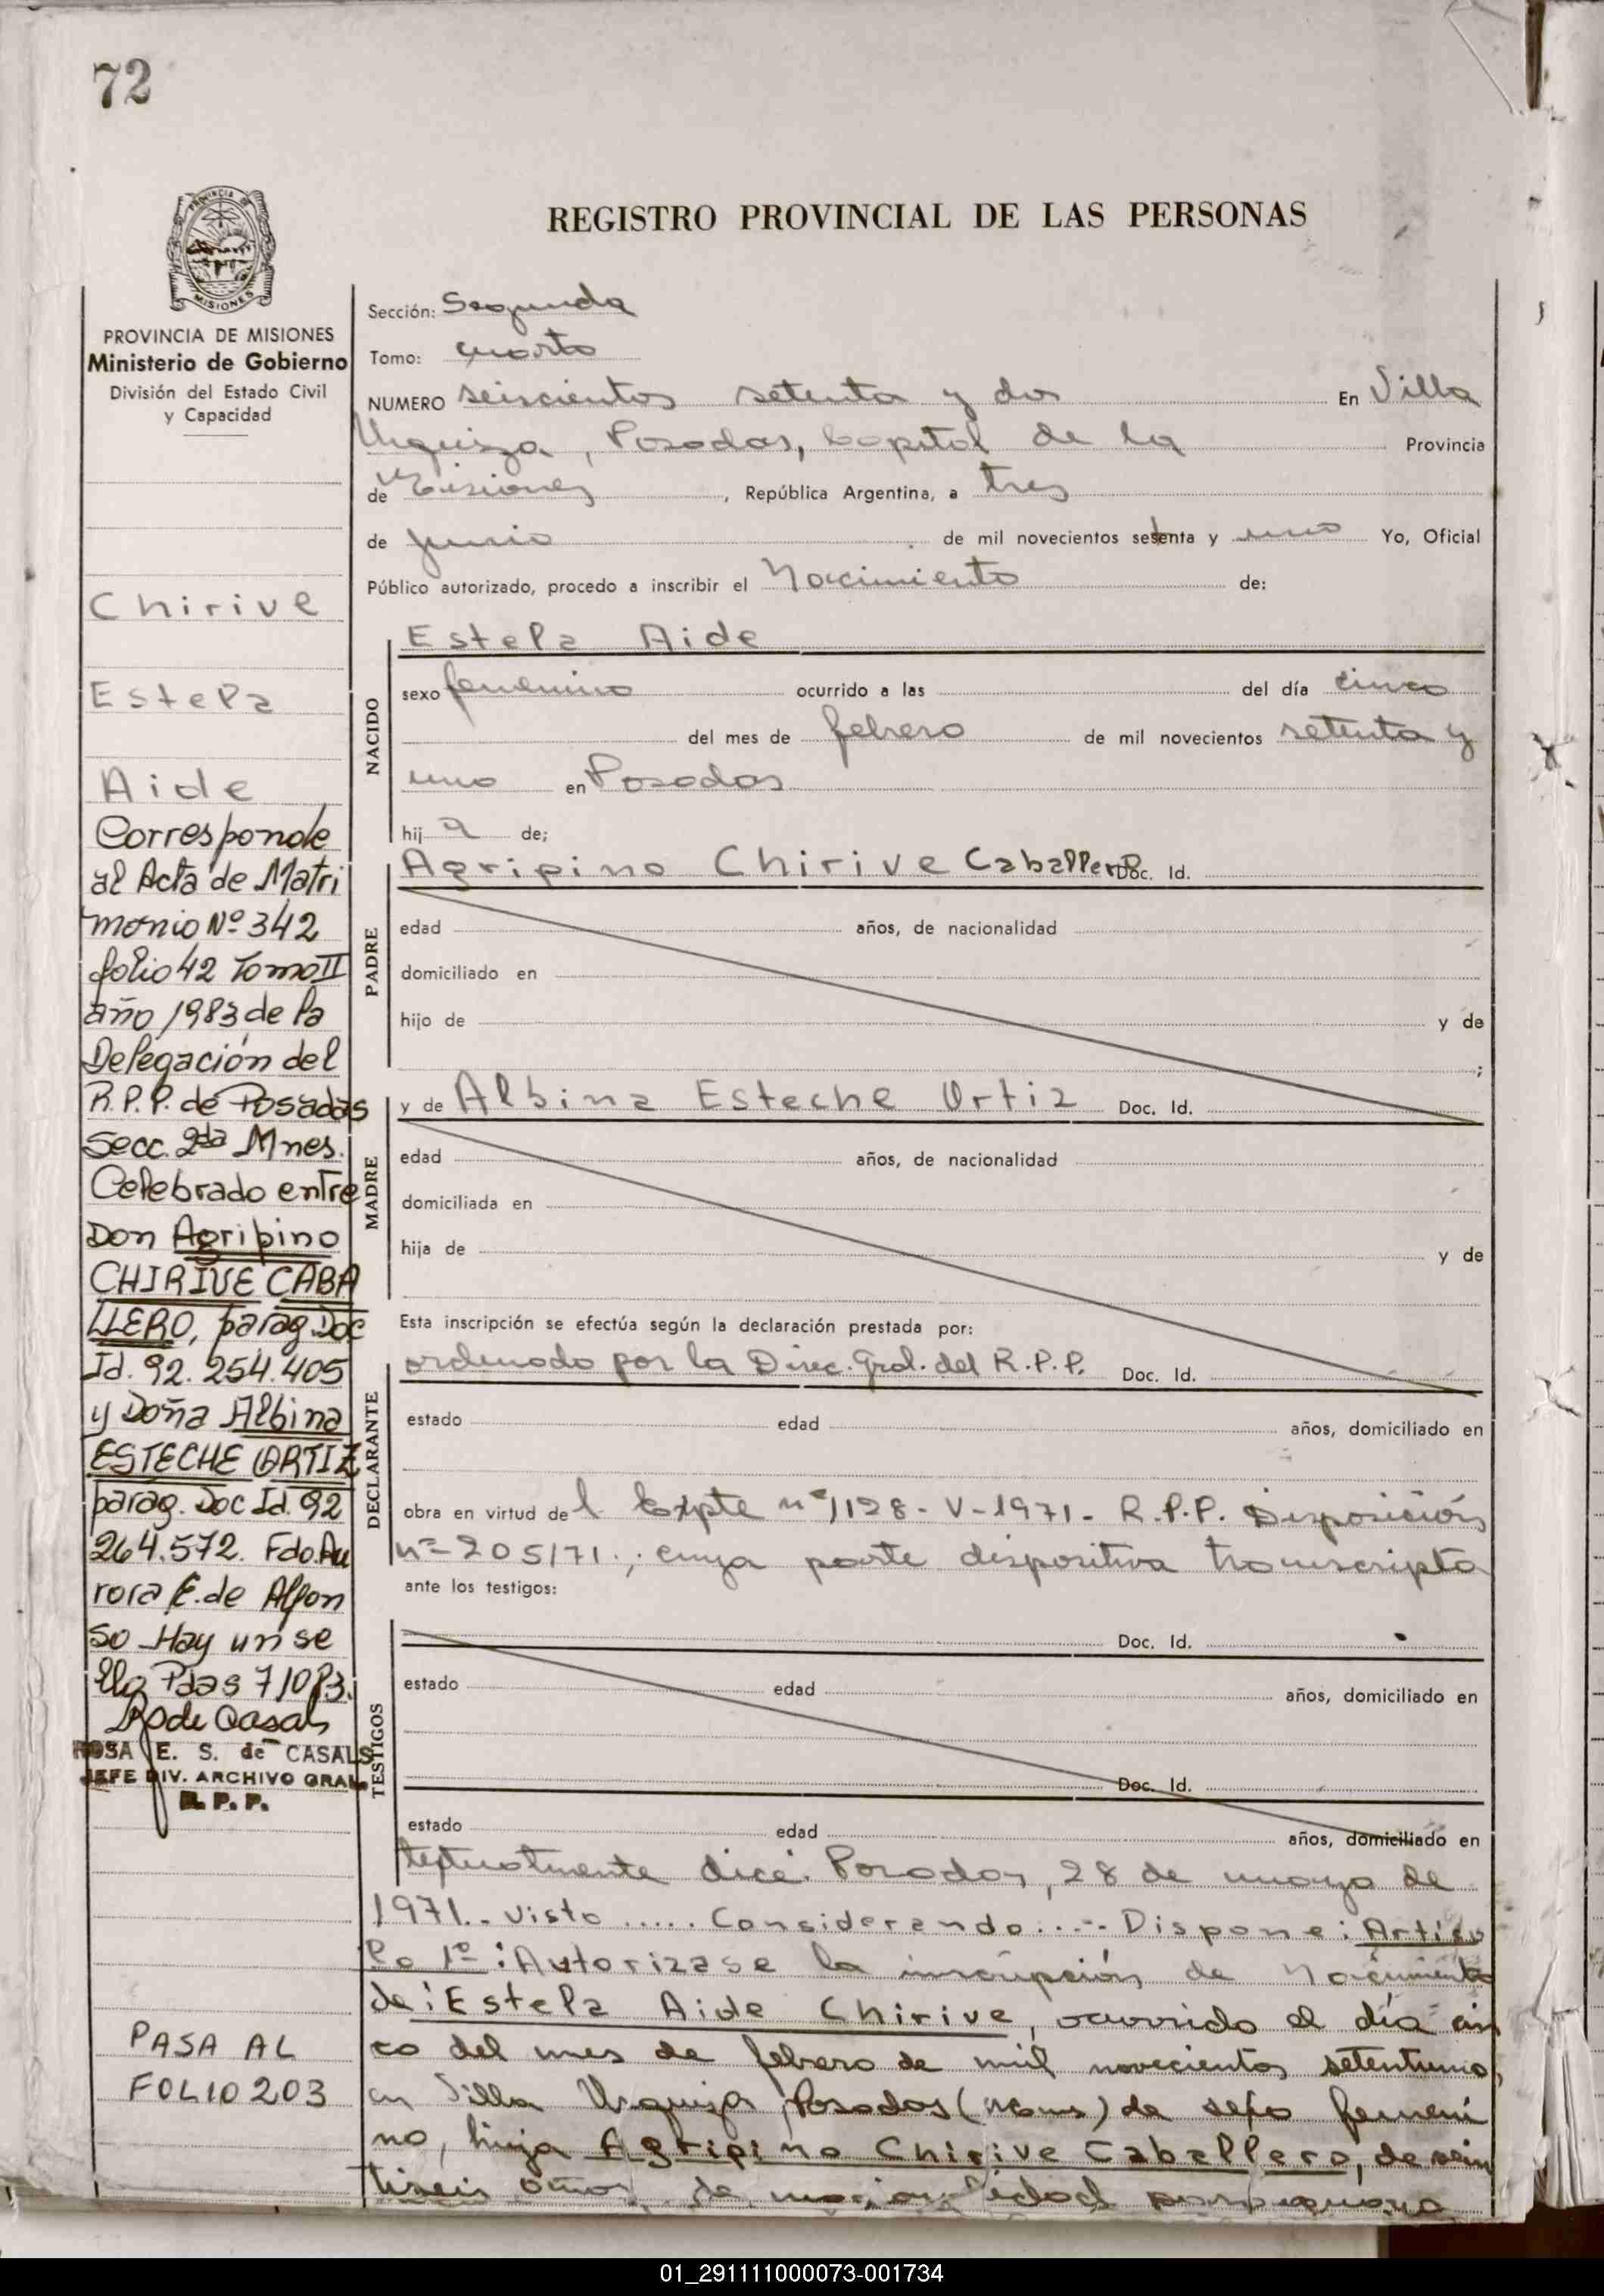 72
REGISTRO PROVINCIAL DE LAS PERSONAS
PROVINCIA DE
MISIONES
PROVINCIA DE MISIONES
Ministerio de Gobierno
División del Estado Civil
y Capacidad
Chirive
Estela
Aide
Corresponde
al Acta de Matri
monio Nº 342
folio 42 Tomo II
año 1983 de la
Delegación del
R.P.P. de Posadas
Secc. 2da Mnes.
Celebrado entre
Don Agripino
CHIRIVE CABA
LLERO, parag. Doc
Id. 92.254.405
y Doña Albina
ESTECHE ORTIZ
parag. Doc Id. 92
264.572. Fdo. Au
rora E. de Alfon
so Hay un se
llo Pdas 7/10/83.
R de Casals
ROSA E. S. de CASALS
JEFE DIV. ARCHIVO GRAL
R. P. P.
PASA AL
FOLIO 203
Sección: Segunda
Tomo: cuarto
NUMERO seiscientos setenta y dos En Villa
Urquiza, Posadas, Capital de la Provincia
de Misiones, República Argentina, a tres
de junio de mil novecientos setenta y uno Yo, Oficial
Público autorizado, procedo a inscribir el Nacimiento de:
NACIDO
Estela Aide
sexo femenino ocurrido a las del día cinco
del mes de febrero de mil novecientos setenta y
uno en Posadas
hij a de;
PADRE
Agripino Chirive Caballero Doc. Id.
edad años, de nacionalidad
domiciliado en
hijo de y de
;
MADRE
y de Albina Esteche Ortiz Doc. Id.
edad años, de nacionalidad
domiciliada en
hija de y de
Esta inscripción se efectúa según la declaración prestada por:
DECLARANTE
ordenado por la Direc. Gral. del R.P.P. Doc. Id.
estado edad años, domiciliado en
obra en virtud del Expte nº 1128-V-1971- R.P.P. Disposición
nº 205/71.; cuya parte dispositiva transcripta
ante los testigos:
TESTIGOS
Doc. Id.
estado edad años, domiciliado en
Doc. Id.
estado edad años, domiciliado en
textualmente dice: Posadas, 28 de mayo de
1971.- Visto ..... Considerando ..... Dispone: Artícu
lo 1º: Autorizase la inscripción de Nacimiento
de: Estela Aide Chirive, ocurrido el día cin
co del mes de febrero de mil novecientos setentiuno,
en Villa Urquiza Posadas (Mnes) de sexo femeni
no, hija Agripino Chirive Caballero, de vein
tiseis años, de nacionalidad paraguaya
01_291111000073-001734